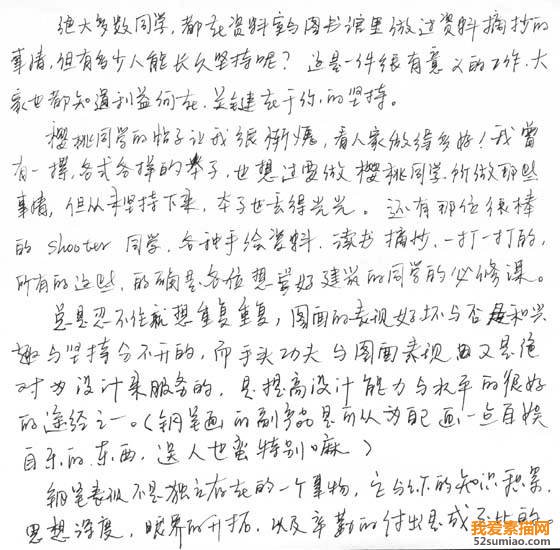 绝大多数同学,都在资料室与图书馆里做过资料摘抄的
事情,但有多少人能长久坚持呢?这是一件很有意义的工作.大
家也都知道利益何在.关键在于你,的坚持。
樱桃同学的帖子让我很惭愧,看人家做得多好!我曾
有一摞,各式各样的本子,也想过要做樱桃同学.所做那些
事情,但从未坚持下来.本子也丢得光光。还有那位很棒
的shooter同学.各种手绘资料.读书摘抄.一打一打的,
所有的这些,的确是各位想学好建筑的同学的必修课。
总是忍不住就想重复重复,图面的表现好坏与否是和兴
趣与坚持分不开的,而手头功夫与图面表现又是绝
对为设计来服务的,是提高设计能力与水平的很好
的途径之一。(钢笔画的副产品是可以为自己画一点自娱
自乐的东西,送人也蛮特别嘛)
钢笔表现不是独立存在的一个事物,它与你的知识积累.
思想深度,眼界的开拓.以及辛勤的付出是成正比的
我爱素描网
52sumiao.com